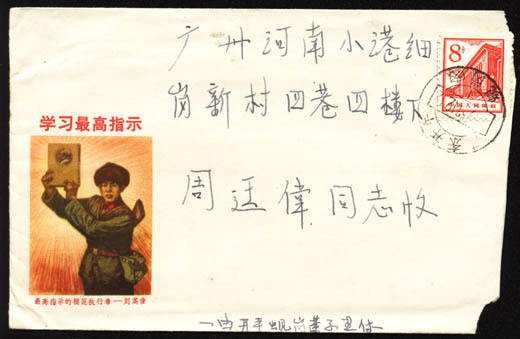 广州河南小港细
岗新村四巷四楼下
周廷偉同志收
学习最高指示
最高指示的模范执行者——刘英俊
8分
中国人民邮政